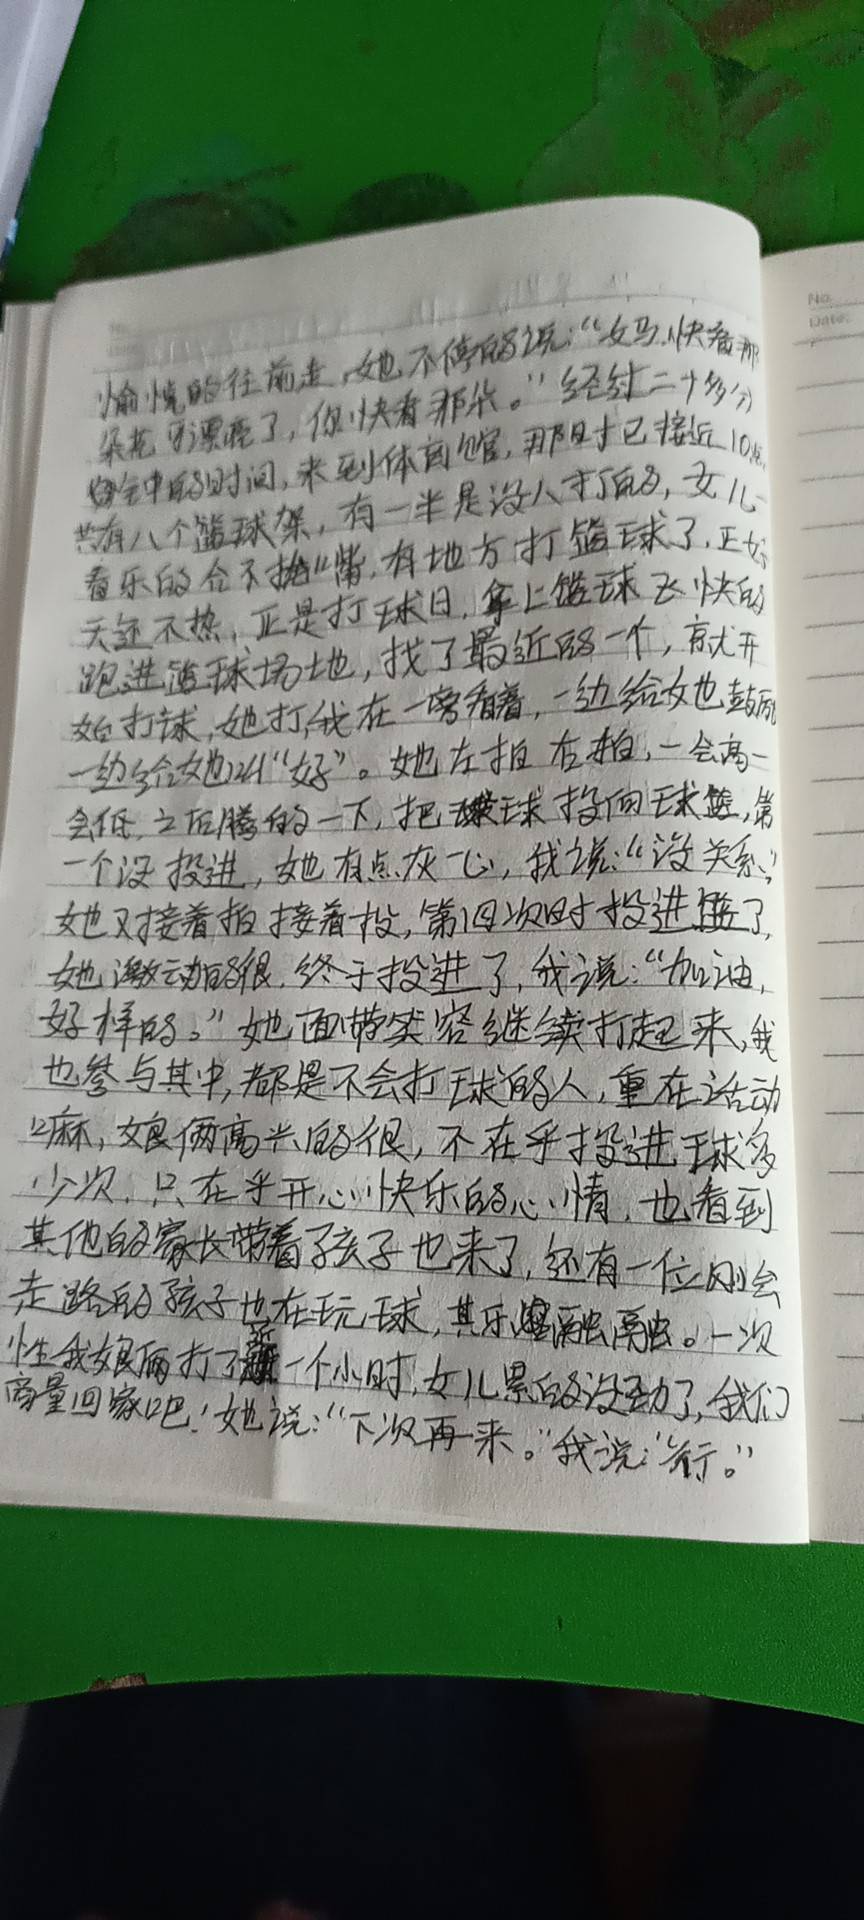 No.
Date.
愉悦的往前走,她不停的说:“妈,快看那
朵花可漂亮了,你快看那朵。”经过二十多分
钟的时间,来到体育馆,那时已接近10点,
共有八个篮球架,有一半是没人打的,女儿一
看乐的合不拢嘴,有地方打篮球了,正好
天还不热,正是打球日,拿上篮球飞快的
跑进篮球场地,找了最近的一个,就开
始打球,她打,我在一旁看着,一边给她鼓励
一边给她叫“好”。她左拍右拍,一会高一
会低,之后腾的一下,把球投向球篮,第
一个没投进,她有点灰心,我说:“没关系,”
她又接着拍接着投,第四次时投进篮了,
她激动的很,终于投进了,我说:“加油,
好样的。”她面带笑容继续打起来,我
也参与其中,都是不会打球的人,重在活动
嘛,娘俩高兴的很,不在乎投进球多
少次,只在乎开心快乐的心情,也看到
其他的家长带着孩子也来了,还有一位刚会
走路的孩子也在玩球,其乐融融。一次
性我娘俩打了近一个小时,女儿累的没劲了,我们
商量回家吧!她说:“下次再来。”我说:“行。”